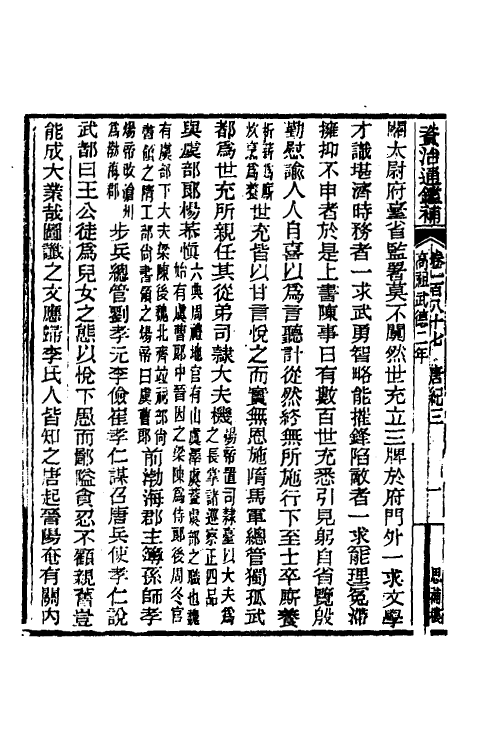 資治通鑑補
卷一百八十七 唐紀三
高祖武德二年
一
思補樓
關太尉府臺省監署莫不闐然世充立三牌於府門外一求文學
才識堪濟時務者一求武勇智略能摧鋒陷敵者一求能理冤滯
擁抑不申者於是上書陳事日有數百世充悉引見躬自省覽殷
勤慰諭人人自喜以為言聽計從然終無所施行下至士卒廝養
析薪為廝
炊烹為養
世充皆以甘言悅之而實無恩施隋馬軍總管獨孤武
都為世充所親任其從弟司隸大夫機
煬帝置司隸臺以大夫為
之長掌諸巡察正四品
與虞部郎楊恭慎
六典周禮地官有山虞澤虞蓋虞部之職也魏
始有虞曹郎中晉因之梁陳為侍郎後周冬官
有虞部下大夫梁陳後魏北齊竝祠部尚
書領之隋工部尚書領之煬帝曰虞曹郎
前渤海郡主簿孫師孝
煬帝改滄州
為渤海郡
步兵總管劉孝元李儉崔孝仁謀召唐兵使孝仁說
武都曰王公徒為兒女之態以悅下愚而鄙隘貪忍不顧親舊豈
能成大業哉圖讖之文應歸李氏人皆知之唐起晉陽奄有關內